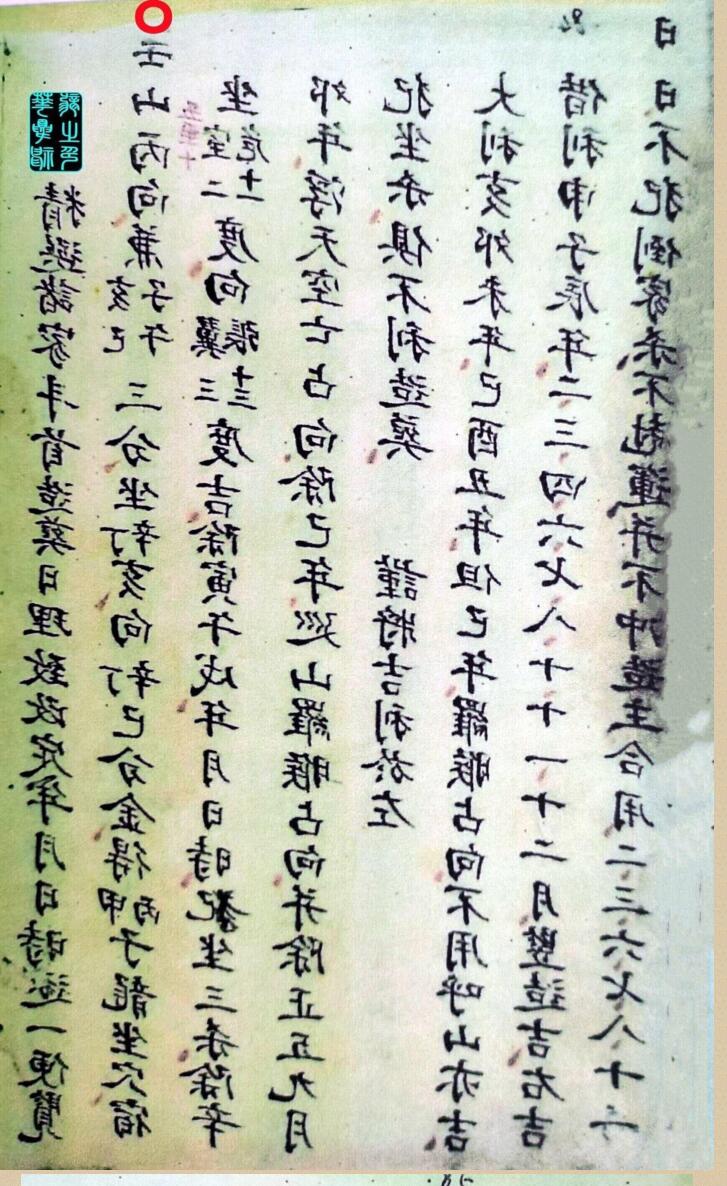 精選諸家斗首造葬日理致改定年月日時逐一便覽
壬山丙向兼亥巳子午三分坐丁辛亥向丁辛巳分金得甲丙子龍坐穴宿
坐室二危十一度向翼三張十三度吉除寅午戌年月日時犯坐三杀除辛
卯年浮天空亡占向除己年巡山羅睺占向并除正五九月
犯坐杀俱不利造葬 謹將吉利於左
大利亥卯未年巳酉丑年但巳年羅睺占向不用呼山亦吉
借利申子辰年二三四六七八十十一十二月豎造吉右吉
日日不犯倒家杀不尅運并不冲造主合用二三六七八十十一